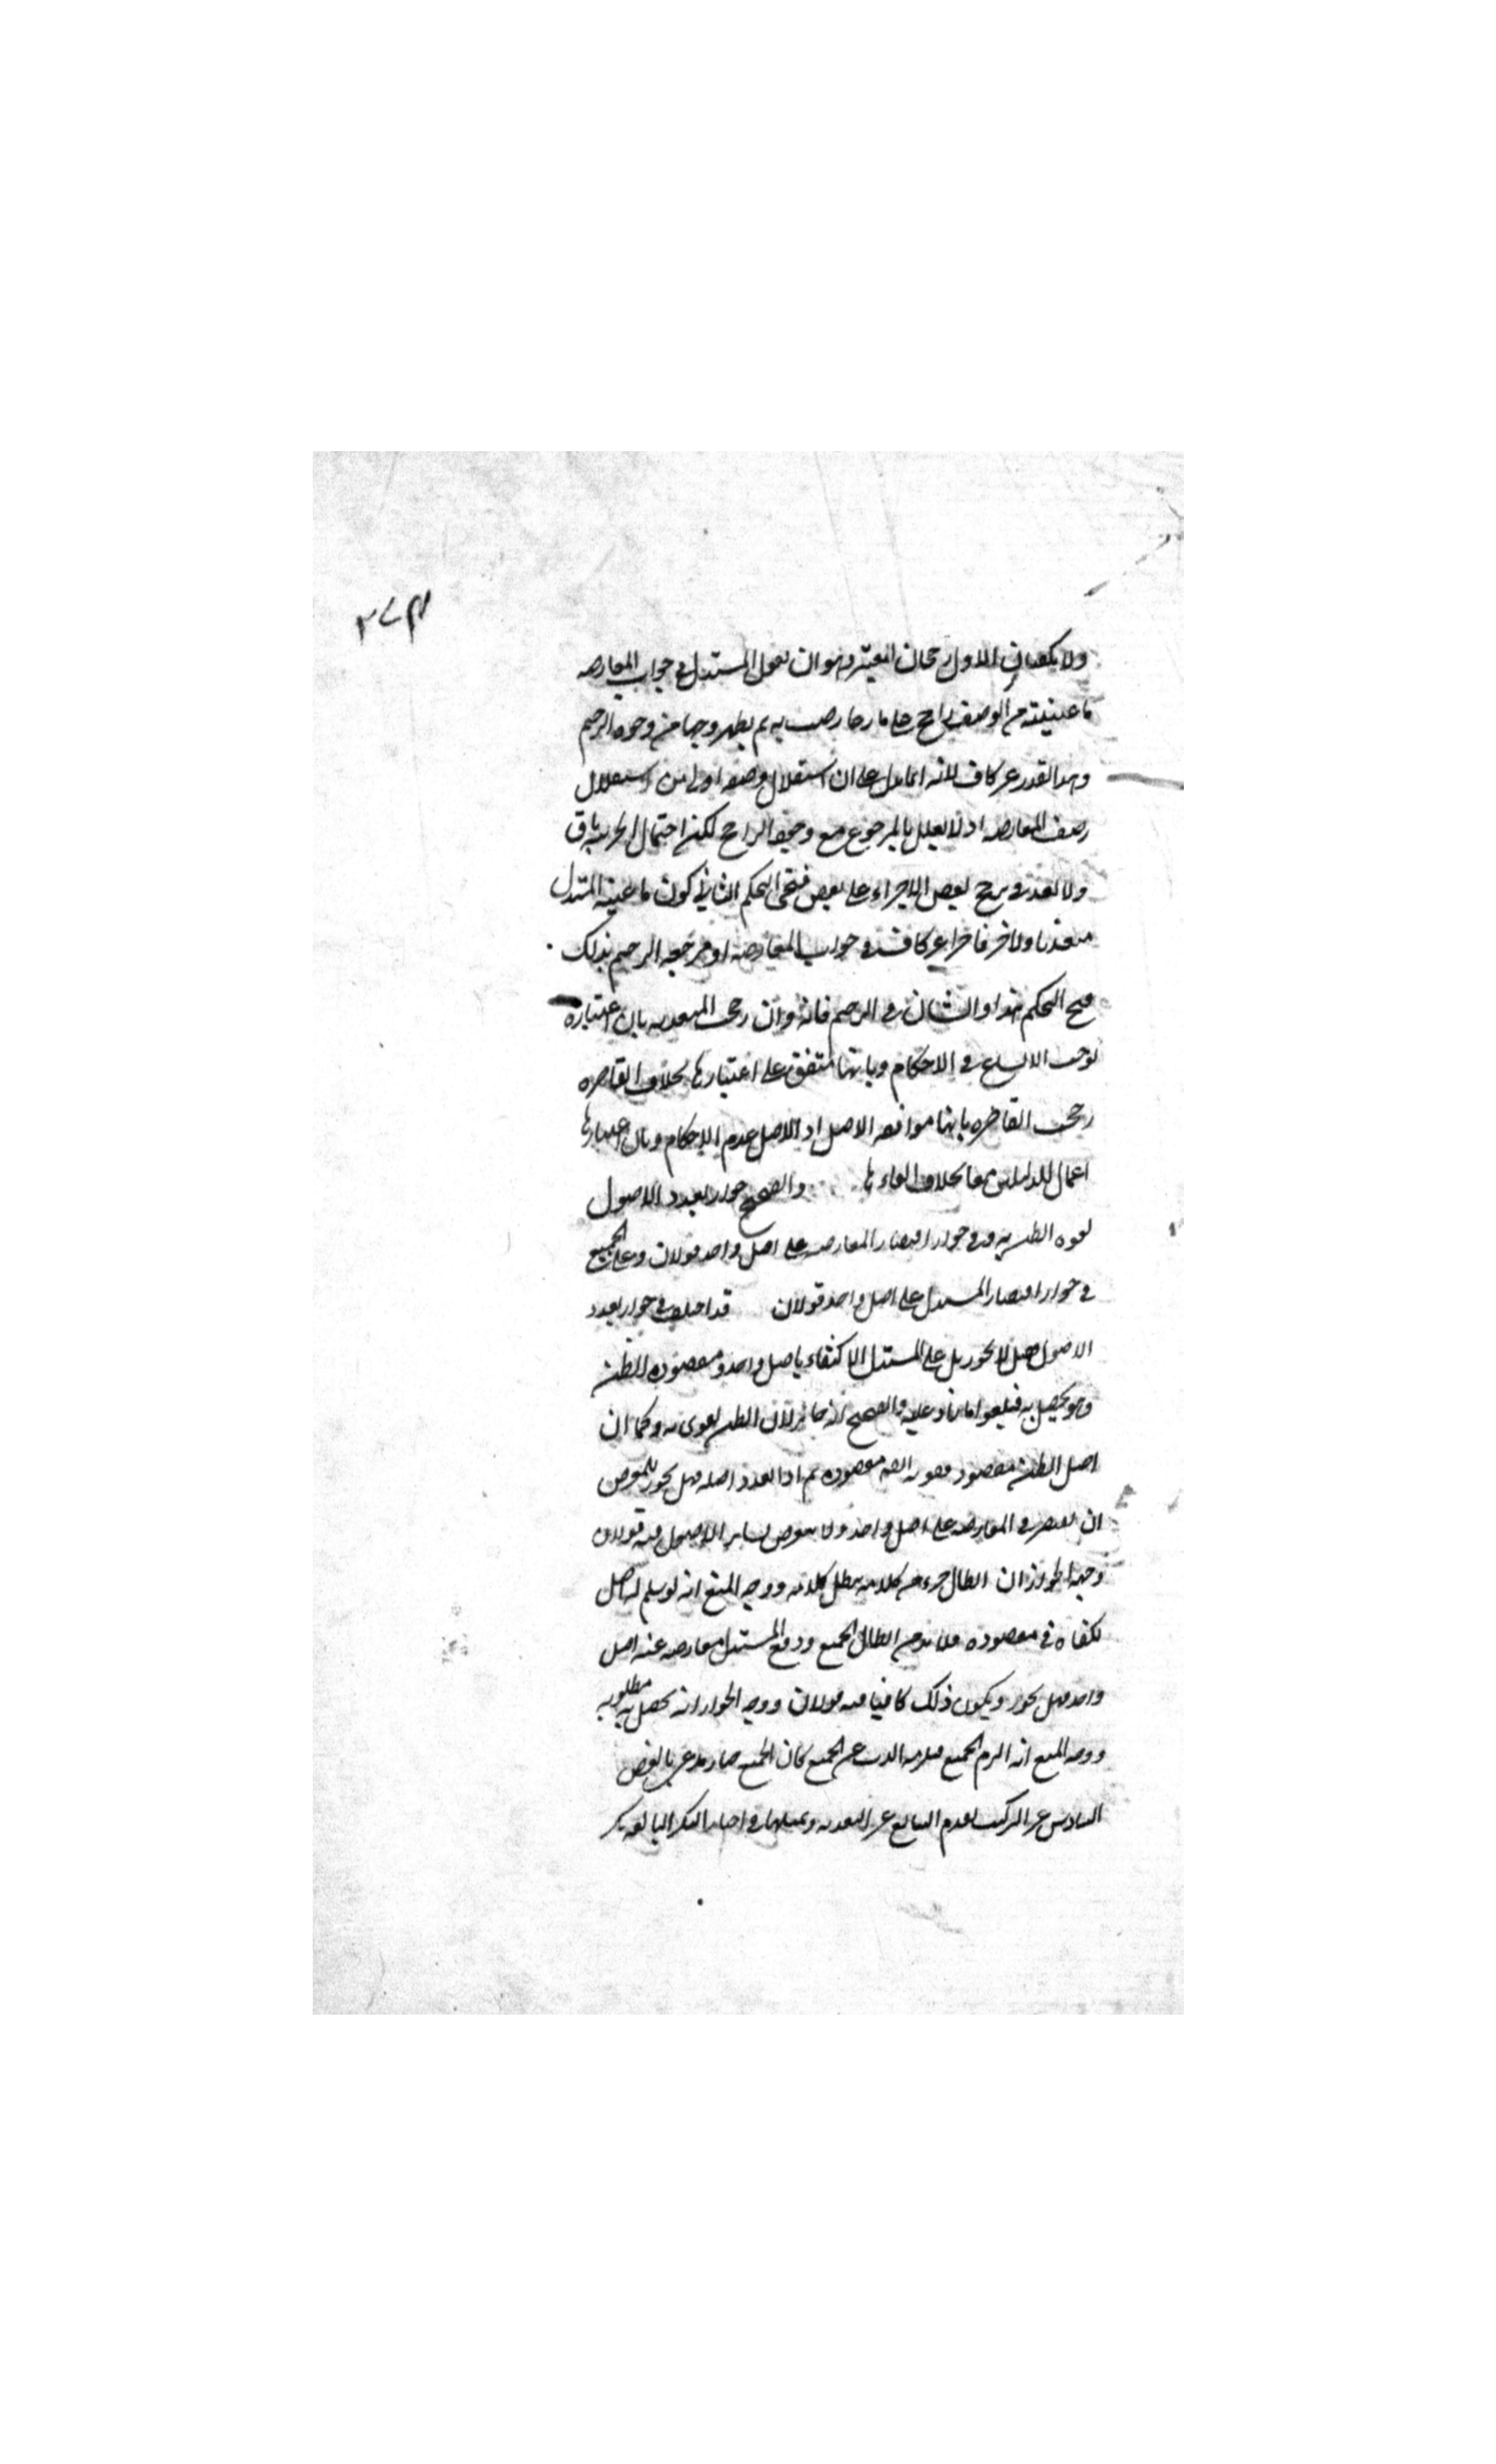 ولا يكفيان الاول رجحان المعين وهو ان يقول المستدل في جواب المعارضة
ما عينته من الوصف راجح على ما عارضت به ثم يظهر وجها من وجوه الترجيح
وهذا القدر غير كاف لانه انما يدل على ان استقلال وصفه اولى من استقلال
وصف المعارضة اذ لا يعلل بالمرجوح مع وجود الراجح لكن احتمال الجزئية باق
ولا بعد في ترجيح بعض الاجزاء على بعض فيجئ التحكم الثاني كون ما عينه المستدل
متعديا والاخر قاصرا غير كاف في جواب المعارضة اذ مرجعه الترجيح بذلك
فيجئ التحكم هذا والشان في الترجيح فانه وان رجحت المتعدية بان اعتباره
يوجب الاتساع في الاحكام وبانها متفق على اعتبارها بخلاف القاصره
رجحت القاصره بانها موافقه الاصل اذ الاصل عدم الاحكام وبان اعتبارها
اعمال للدليلين معا بخلاف الغاءها والصحيح جواز تعدد الاصول
لقوه الظن به وفي جواز اقتصار المعارضه على اصل واحد قولان وعلى الجميع
في جواز اقتصار المستدل على اصل واحد قولان قد اختلف في جواز تعدد
الاصول فقيل لا يجوز بل على المستدل الاكتفاء باصل واحد ومقصوده الظن
وهو يحصل به فيلغو ما زاد عليه والصحيح انه جائز لان الظن يقوى به وكما ان
اصل الظن مقصود فقوته ايضا مقصوده ثم اذا تعدد اصله فهل يجوز للمعترض
ان يقتصر في المعارضه على اصل واحد ولا يتعرض لساير الاصول فيه قولان
وجه الجواز ان ابطال جزء من كلامه يبطل كلامه ووجه المنع انه لو سلم له اصل
لكفاه في مقصوده فلا بد من ابطال الجميع ودفع المستدل معارضه عنه اصل
واحد فهل يجوز ويكون ذلك كافيا فيه قولان ووجه الجواز انه يحصل به مطلوبه
ووجه المنع انه التزم الجميع فلزمه الذب عن الجميع كان الجميع صار مدعى بالعرض
السادس عشر التركيب تقدم السابع عشر التعديه وتمثيلها في اجبار البكر البالغه بكر